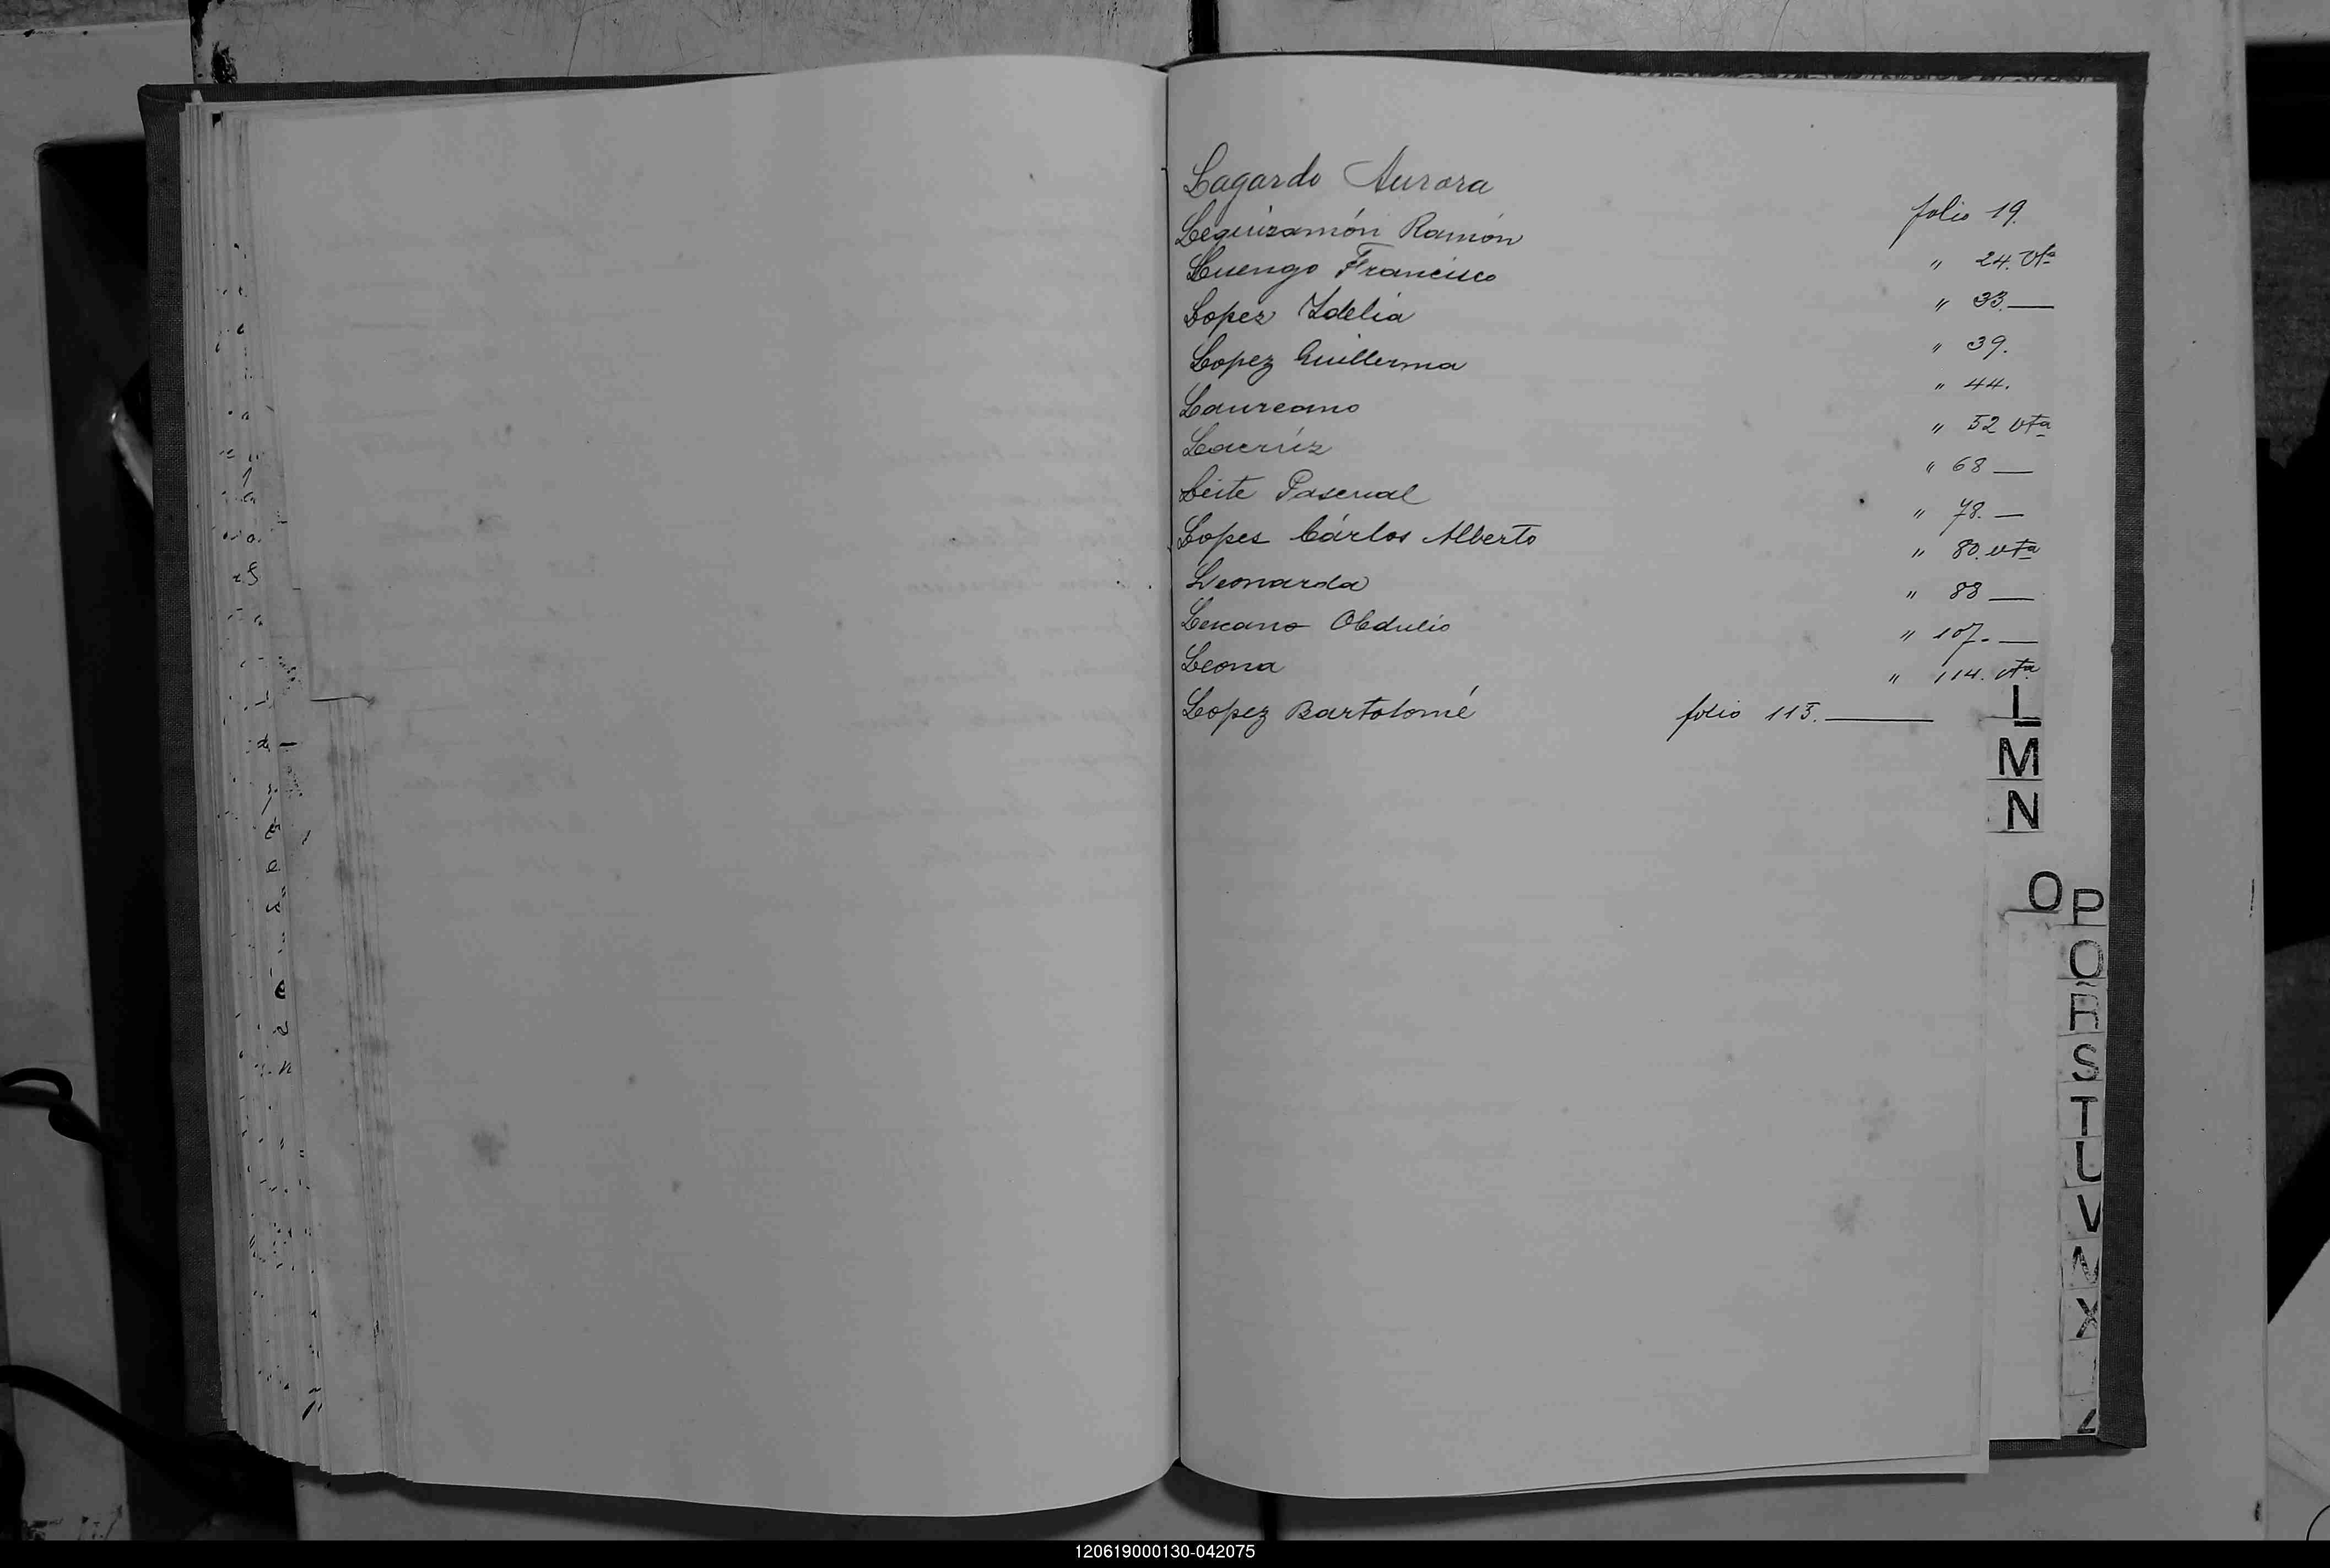 Lagardo Aurora folio 19.
Leguizamón Ramón " 24. vta
Luengo Francisco " 33.—
Lopez Idelia " 39.
Lopez Guillerma " 44.
Laureano " 52 vta
Lacrúz " 68 —
Leite Pascual " 78. —
Lopes Cárlos Alberto " 80. vta
Leonarda " 88 —
Lescano Obdulio " 107. —
Leona " 114. vta
Lopez Bartolomé folio 115. —
L
M
N
O P
Q
R
S
T
U
V
X
Z
120619000130-042075